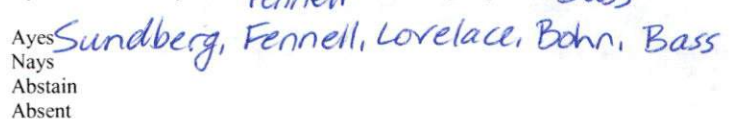 Fennell Bass
Ayes Sundberg, Fennell, Lovelace, Bohn, Bass
Nays
Abstain
Absent